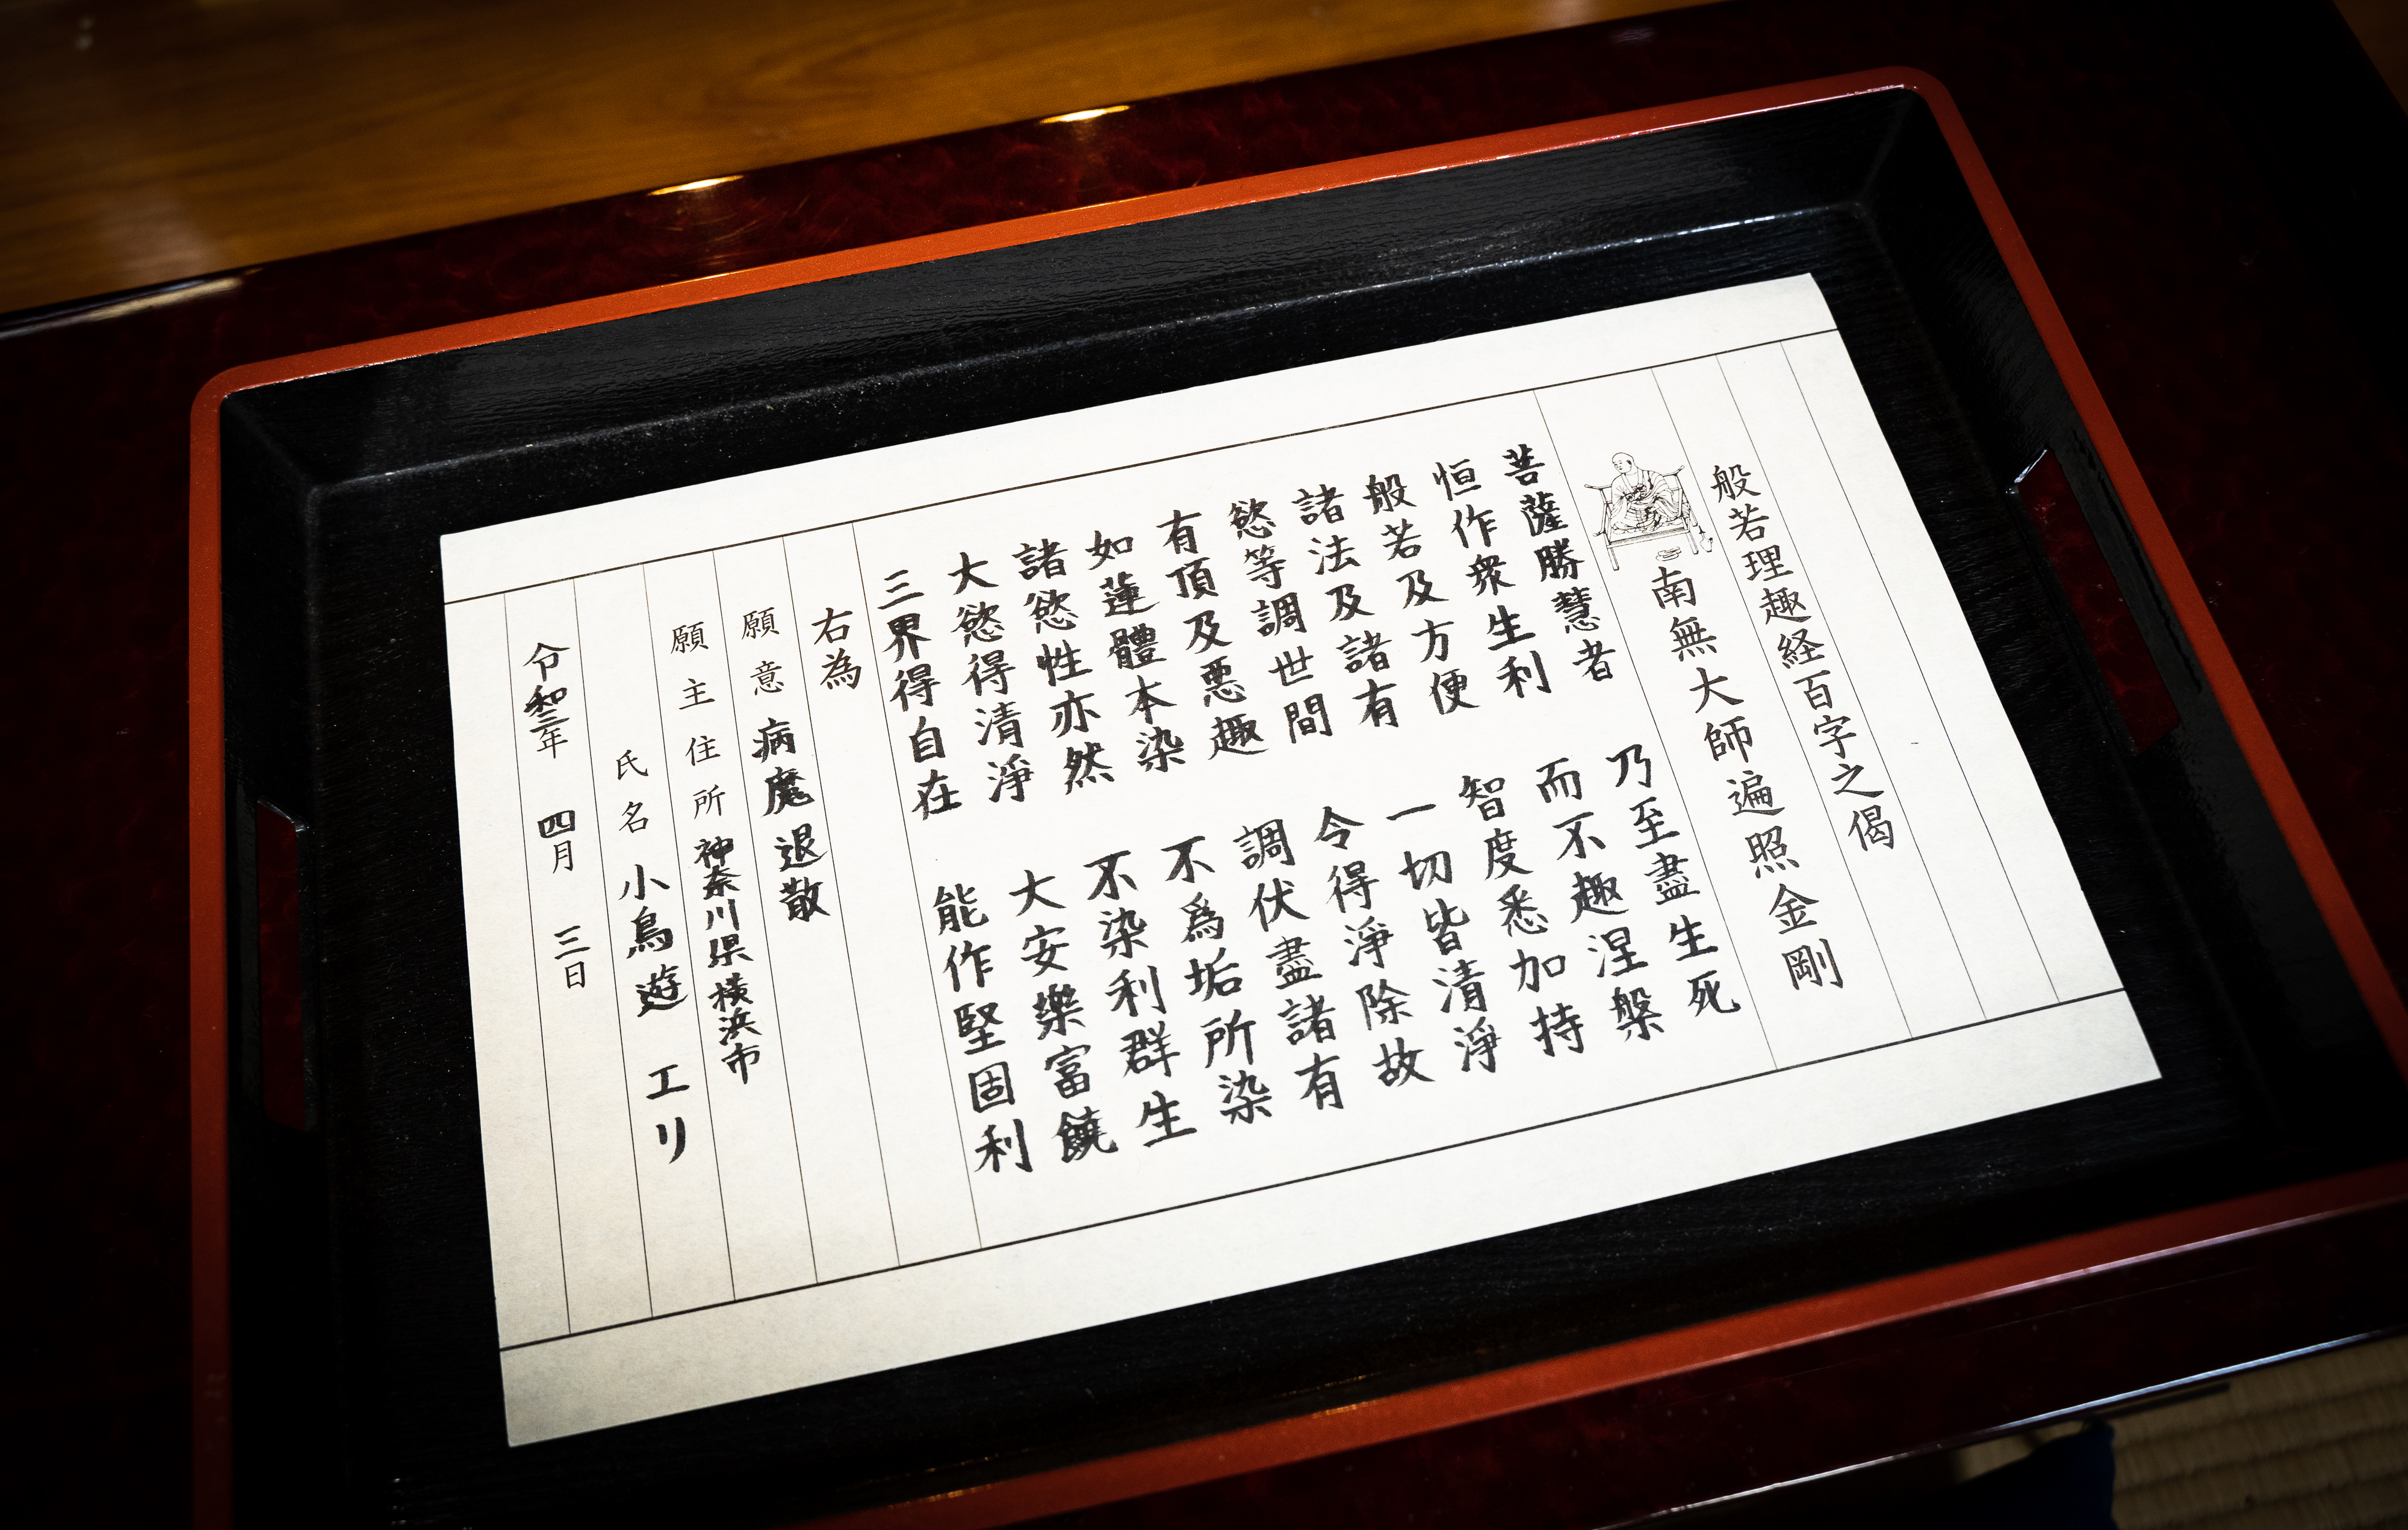 般若理趣経百字之偈
南無大師遍照金剛
菩薩勝慧者 乃至盡生死
恒作衆生利 而不趣涅槃
般若及方便 智度悉加持
諸法及諸有 一切皆清淨
慾等調世間 令得淨除故
有頂及悪趣 調伏盡諸有
如蓮體本染 不爲垢所染
諸慾性亦然 不染利群生
大慾得清淨 大安樂富饒
三界得自在 能作堅固利
右為
願意 病魔退散
願主住所 神奈川県横浜市
氏名 小鳥遊 エリ
令和三年 四月 三日